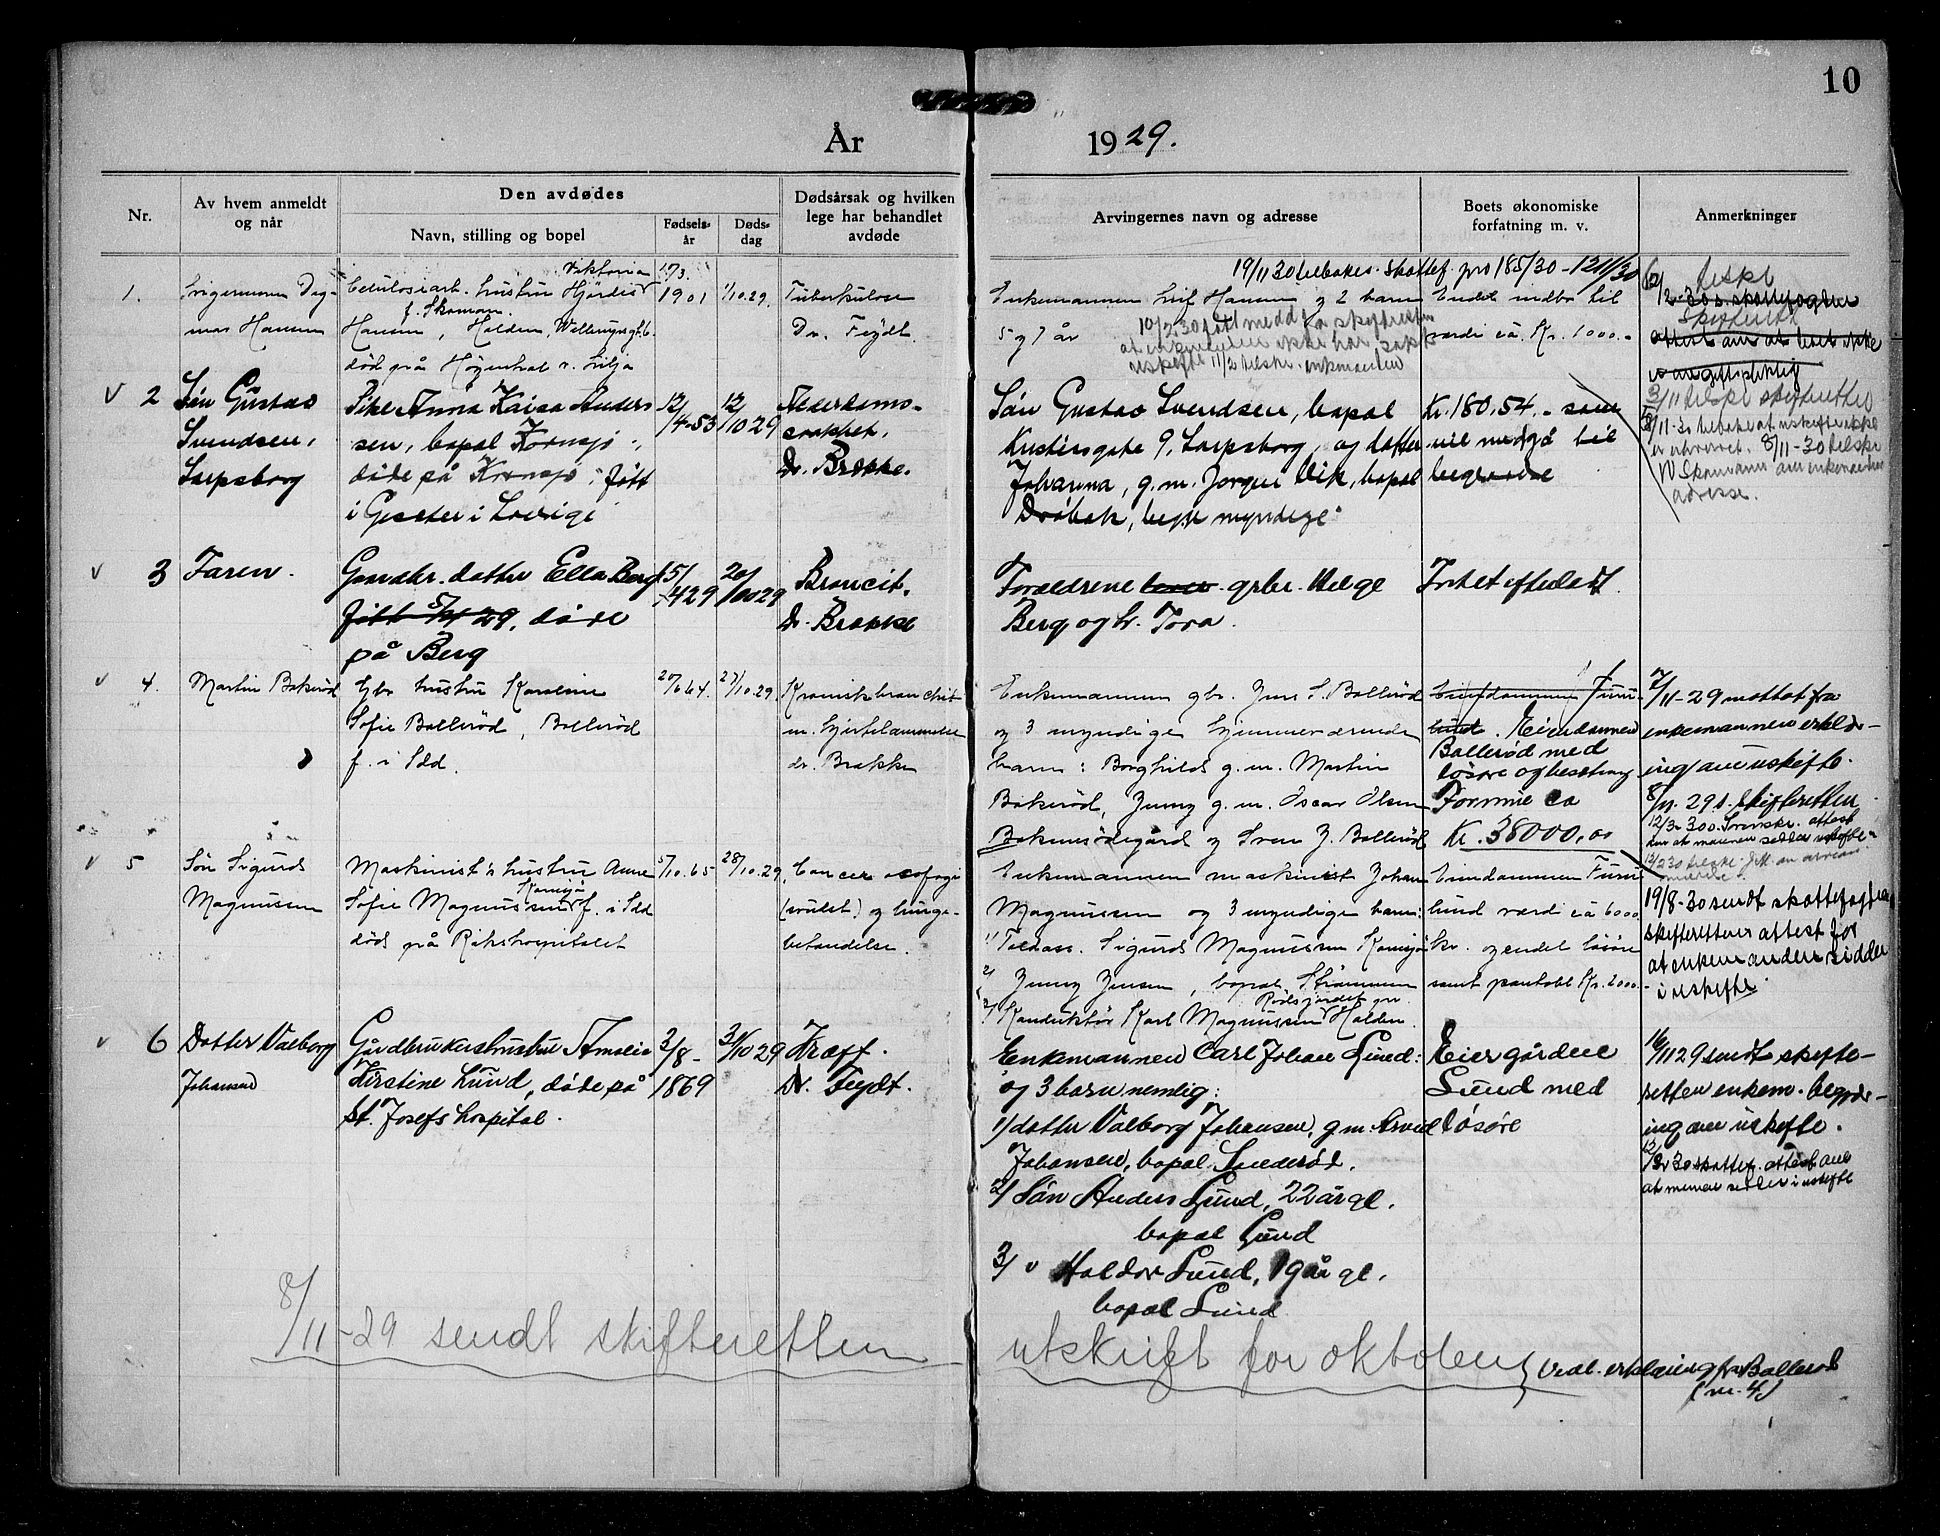 10
År 1929.
Nr.
Av hvem anmeldt og når
Den avdødes
Navn, stilling og bopel
Fødsels-år
Døds-dag
Dødsårsak og hvilken lege har behandlet avdøde
Arvingernes navn og adresse
Boets økonomiske forfatning m. v.
Anmerkninger
1.
Svigermoren Dag-
mar Hansen
Viktoria
Celulosearb. hustru Hjördis
f. Skomam.
Hansen, Halden,
död på Høgenhal v. Lilja
17/3.
1901
1/10.29.
Tuberkulose
Dr. Feydt.
19/11 30 tilbakes. skattef. pro 185/30 - 1211/30
Enkemannen Leif Hansen og 2 barn
5 og 7 år
Endel indbo til
værdi ca. Kr. 1000.-
v 2
Søn Gustav
Svendsen,
Sarpsborg
Pike Anna Kaisa Anders
sen, bopal Kornsjø,
døde på Kornsjø, født
i Gesäter i Sverige
12/4-53
12/10 29
Alderdoms-
svakhet.
Dr. Brække.
Søn Gustav Svendsen, bopal
gate 9, Sarpsborg, og datter
Johanna, g.m. Jørgen Vik, bopal
Drøbak, begge myndige
Kr. 180,54.- som
vil medgå til
begravelse
3/11 tilskr skifteretten
8/11-30 tilskr
Skomann om enkemannens
adresse.
v 3
Faren.
Gaardbr. datter Ella Berg
født 5/4 29, døde
på Berg
5/429
20/1029
Broncit.
Dr. Brække
Forældrene grbr. Helge
Berg og h. Tora.
Intet efterladt.
v 4.
Martin Bakeröd
Gbr hustru Karoline
Sofie Bolleröd, Bolleröd
f. i Idd.
20/6 64.
27/10.29.
Kronisk bronchit
m. hjertelammelse
dr. Brække
Enkemannen gbr. Jens S. Bolleröd
og 3 myndige hjemmeværende
barn: Borghild g.m. Martin
Bakeröd, Jenny g.m. Oscar Olsen
Bakkerödegård og Sven J. Bolleröd
Eiendommen
Bolleröd med
løsøre og besetning
Formue ca
Kr. 38000,00
7/11-29 mottat fra
enkemannen erklær-
ing om uskifte.
8/11. 29 s. skifteretten
v 5
Søn Sigurd
Magnussen
Maskinist's hustru Anna
Sofie Magnussen f. i Idd
Kornsjø
död på Rikshospitalet
5/10.65
28/10.29,
Cancer oesofagi
(svulst) og lunge-
betendelse.
Enkemannen maskinist Johan
Magnussen og 3 myndige barn:
1/ Tollass. Sigurd Magnussen Kornsjø
2/ Jenny Jensen, bopal Strømmen
3/ Konduktör Karl Magnussen Halden.
Eiendommen Furu
lund værdi ca 6000
kr. og endel løsøre
samt pantobl Kr. 2000.-
19/8-30 sendt skattefogden
skifterettens attest for
at enkemanden sidder
i uskifte.
v 6
Datter Valborg
Johansen
Gårdbrukerhustru Amalie
Kirstine Lund, døde på
St. Josefs hospital.
3/8-
1869
31/10 29
Kræft.
Dr. Feydt.
Enkemannen Carl Johan Lund:
og 3 barn nemlig:
1/ datter Valborg Johansen, g.m. Arvid
Johansen, bopal Sanderød.
2/ Søn Anders Lund, 22 år gl.
bopal Lund
3/ v Haldor Lund, 19 år gl.
bopal Lund
Eier gården
Lund med
løsøre
16/1129 sendt skifte-
retten enkem. begjær-
ing om uskifte.
12/2 30 skattef. attest om
at mannen sidder i uskifte
8/11-29 sendt skifteretten utskrift for oktober, vedl. erklæring fra Bollerød
(nr. 4)